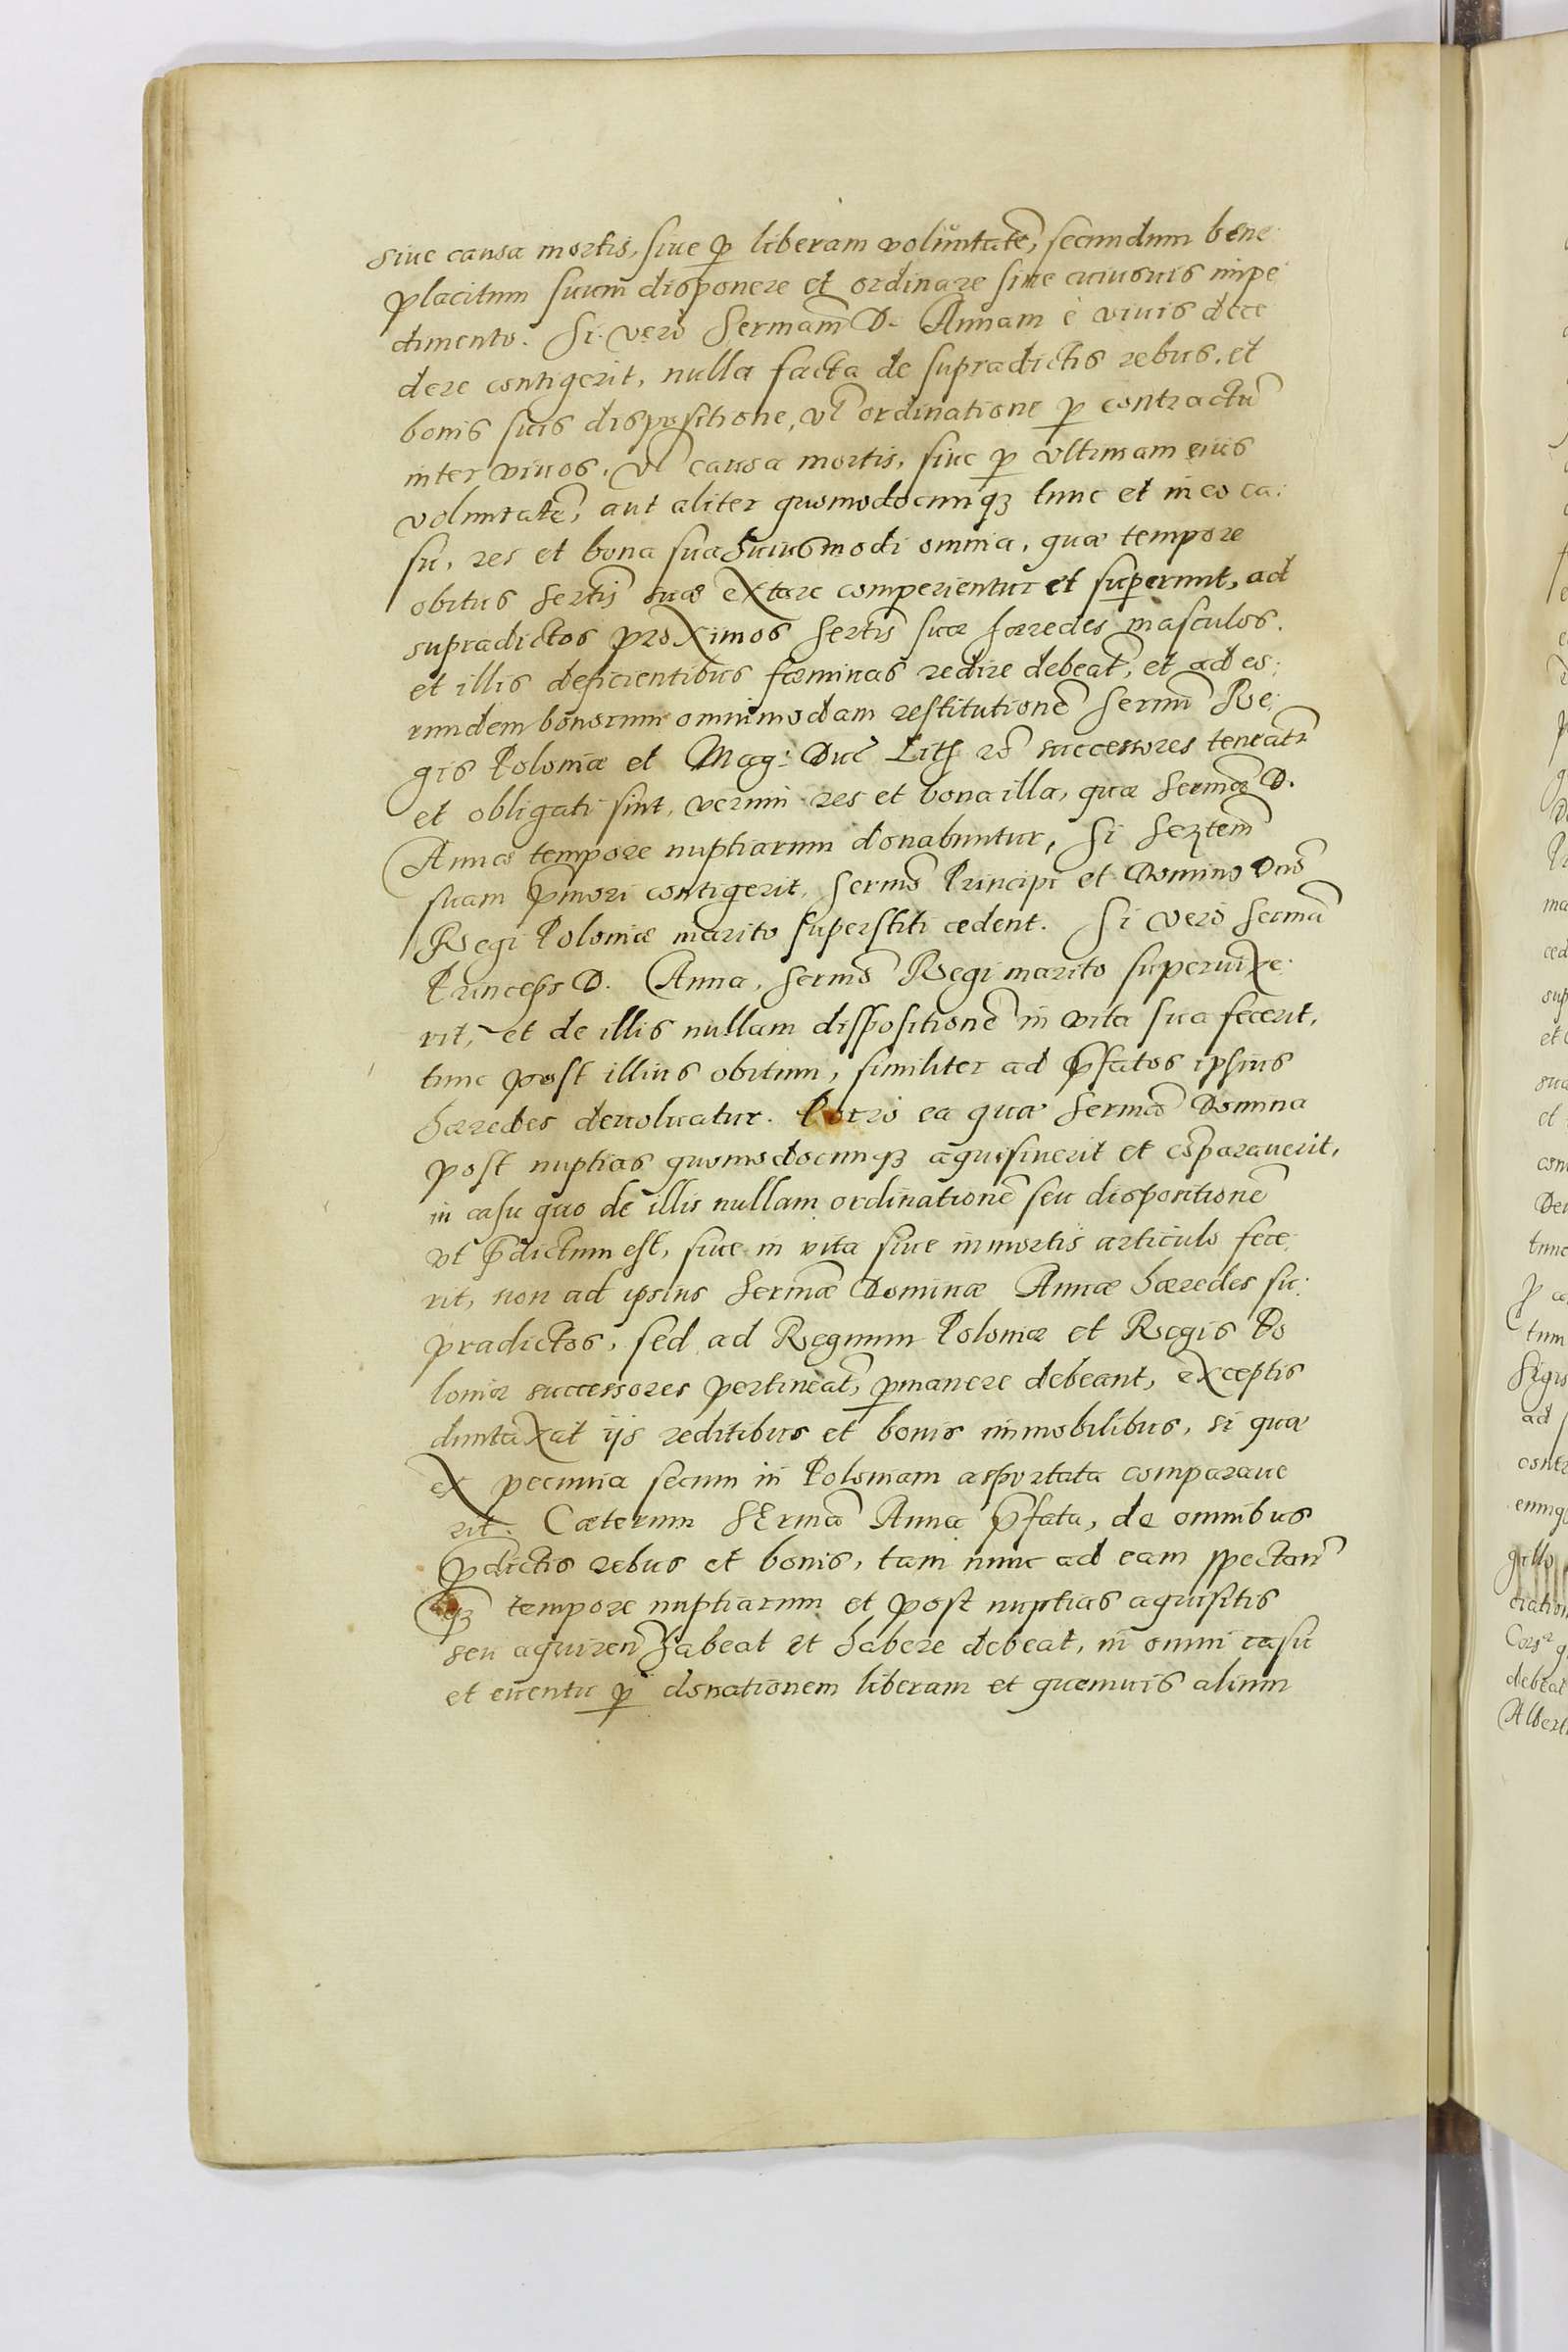 siue causa mortis, siue ꝑ liberam voluntatē, secundum bene
placitum suum disponere et ordinare sine cuiusuis impe
dimento. Si vero Sermam̄ D. Annam è viuis dece
dere contigerit, nulla facta de supradictis rebus, et
bonis suis dispositione, vl̄ ordinatione ꝑ contractū
inter viuos, vl̄ causa mortis, siue ꝑ vltimam eius
voluntatē, aut aliter quomodocunqꝫ tunc et in eo ca:
su, res et bona sua huiusmodi omnia, quæ tempore
obitus Sertis̄ suæ extare comperientur et supererunt, ad
supradictos proximos Sertis̄ suæ hæredes masculos.
et illis deficientibus fœminas redire debeāt, et ad eo:
rundem bonorum omnimodam restitutionē Sermī Re:
gis Poloniæ et Mag: Duc̄ Lith̄ successores teneātr
et obligati sint, verum res et bona illa, quæ Sermǣ D.
Annæ tempore nuptiarum donabuntur, Si Sertem̄
suam p̄mori contigerit, Sermō Principi et Domino Dnō
Regi Poloniæ marito superstiti cedent. Si verò Sermā
Princeps D. Anna, Sermō Regi marito superuixe:
rit, et de illis nullam dispositionē in vita sua fecerit,
tunc post illius obitum, similiter ad p̄fatos ipsius
hæredes deuoluatur. Porrò ea quæ Sermā Domina
post nuptias quomodocunqꝫ aquisiuerit et cōparauerit,
in casu quo de illis nullam ordinationē seu dispositionē
vt p̄dictum est, siue in vita siue in mortis articulo fece:
rit, non ad ipsius Sermǣ Dominæ Annæ hæredes su:
pradictos, sed ad Regnum Poloniæ et Regis Po
loniæ successores pertineāt, ꝑmanere debeant, exceptis
duntaxat ijs reditibus et bonis immobilibus, si quæ
ex pecunia secum in Poloniam asportata comparaue
rit. Cæterum SErmā Anna p̄fata, de omnibus
p̄dictis rebus et bonis, tam nunc ad eam spectan̄
qꝫ tempore nuptiarum et post nuptias aquisitis
seu aquiren̄ habeat et habere debeat, in omni casu
et euentu ꝑ donationem liberam et quemuis alium